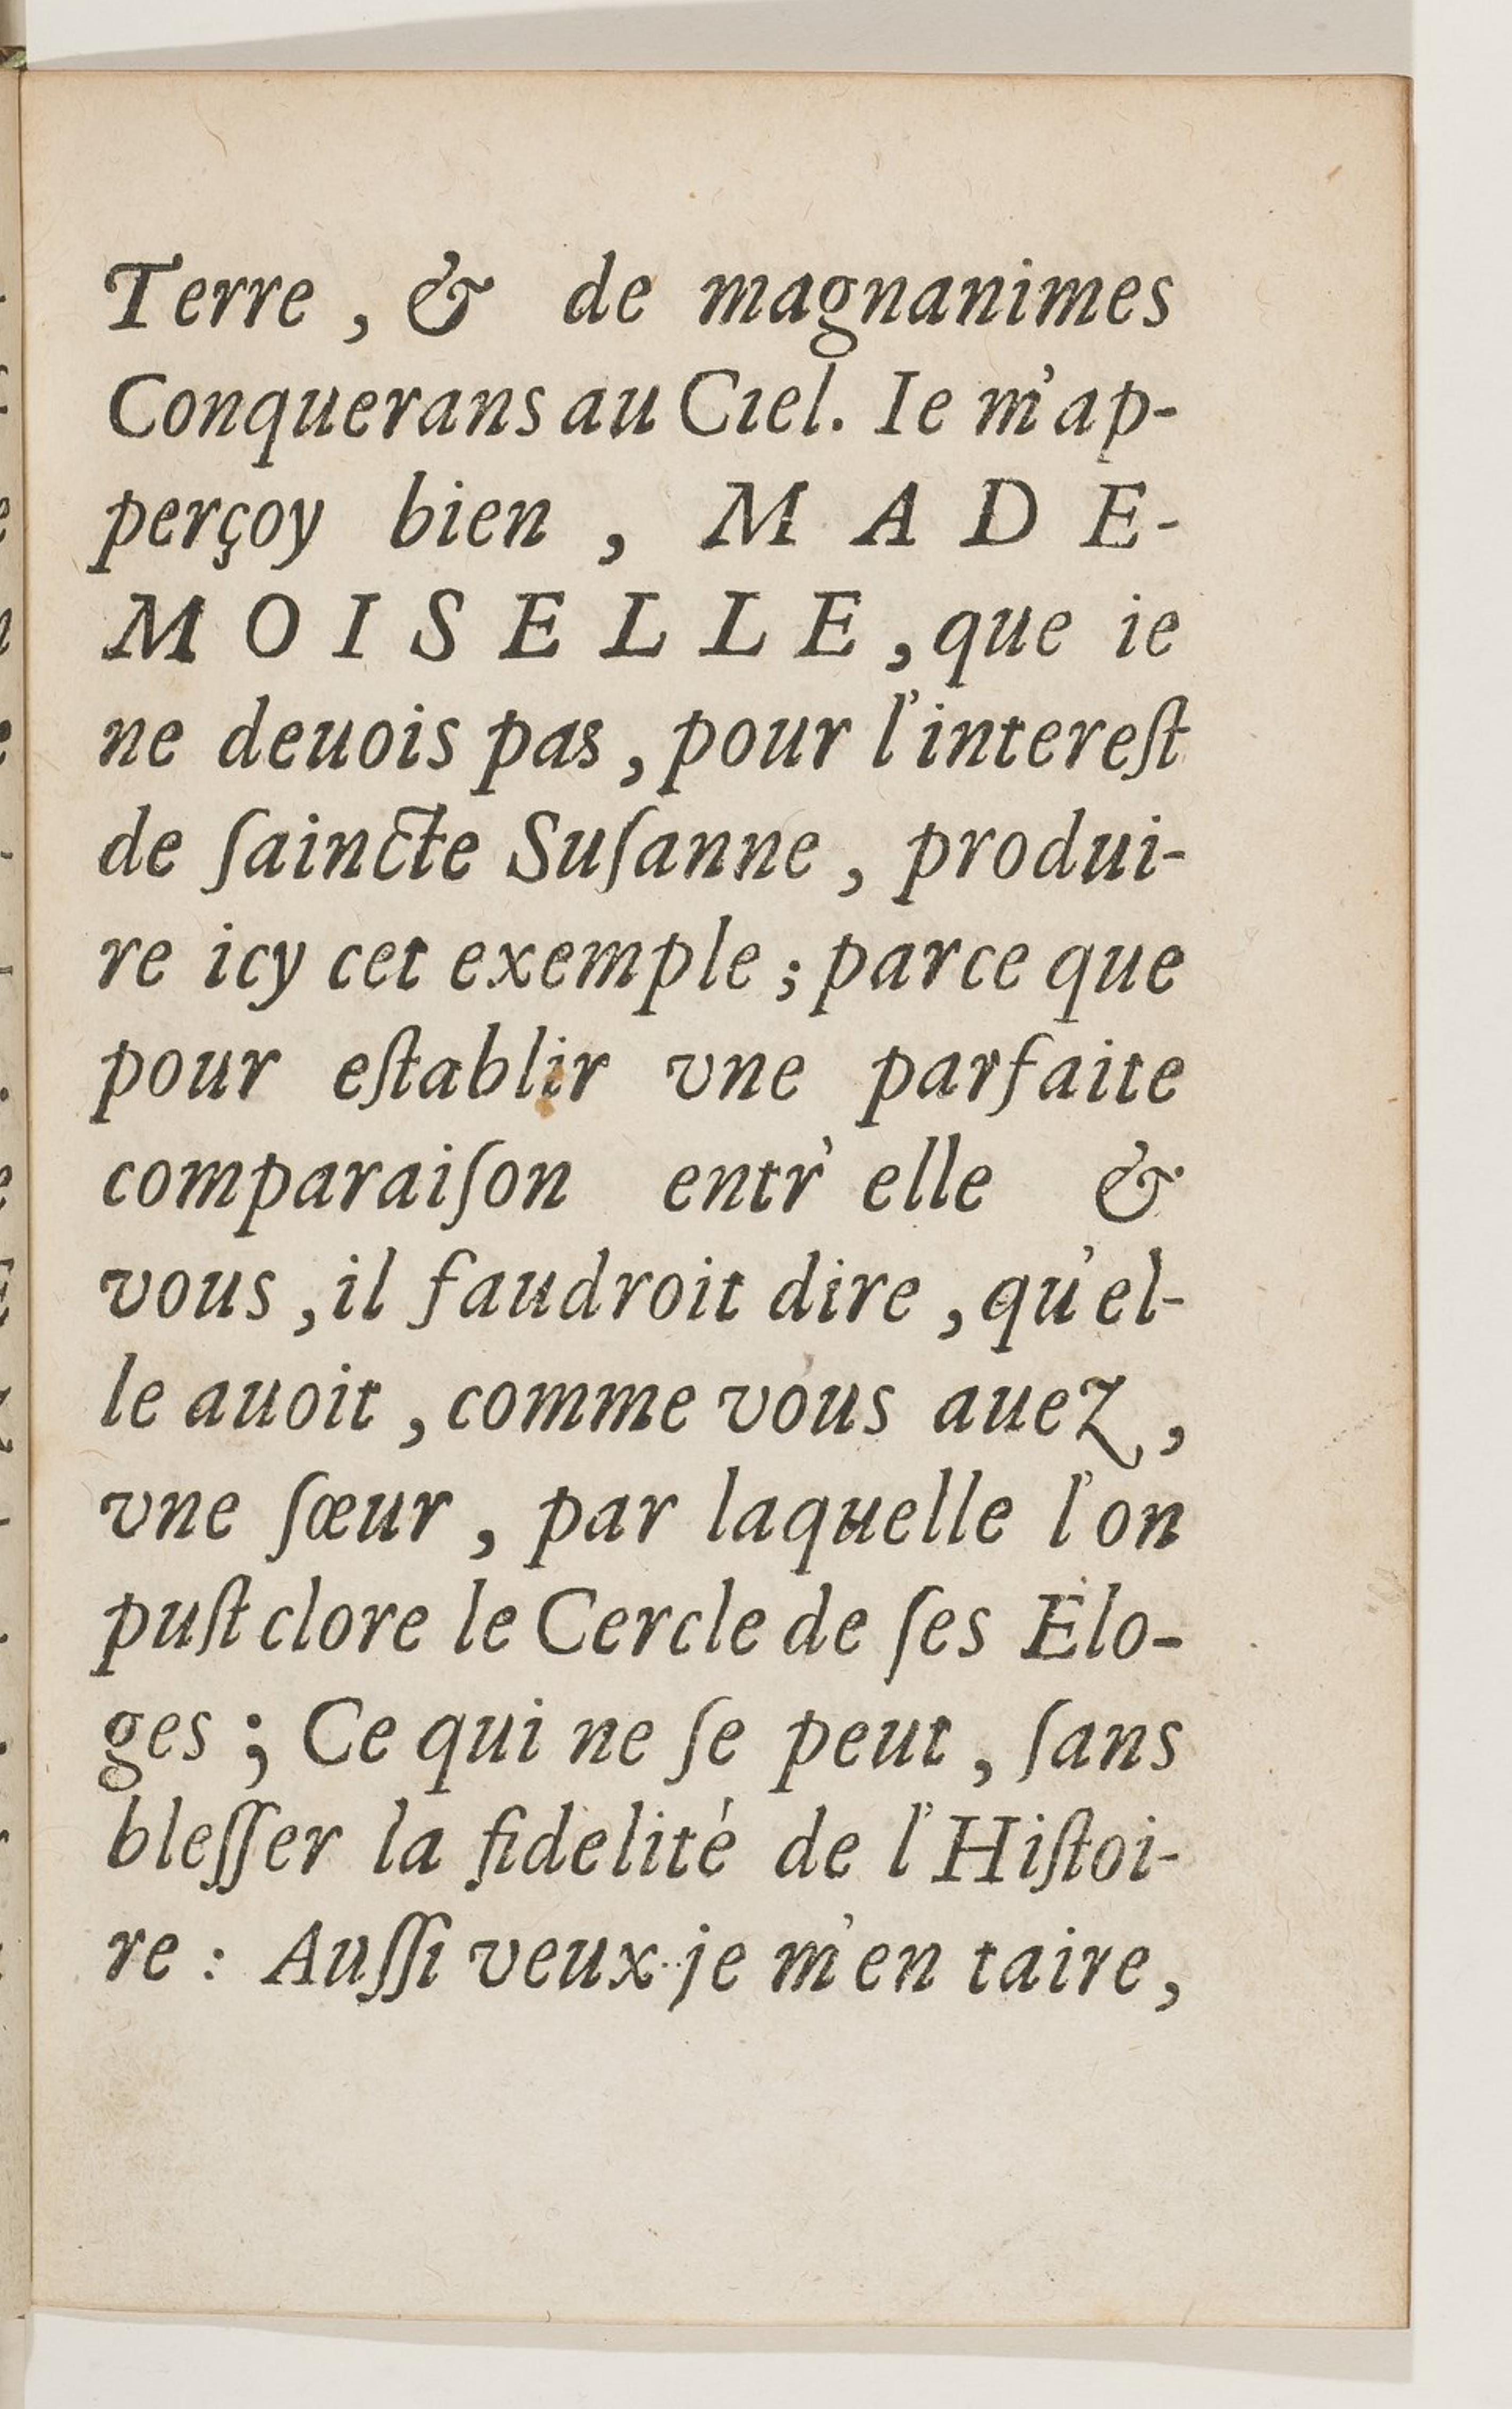 Terre, & de magnanimes
Conquerans au Ciel. Ie m'ap-
perçoy bien, MADE-
MOISELLE, que ie
ne deuois pas, pour l'intereſt
de ſaincte Suſanne, produi-
re icy cet exemple; parce que
pour eſtablir vne parfaite
comparaiſon entr' elle &
vous, il faudroit dire, qu'el-
le auoit, comme vous auez,
vne ſœur, par laquelle l'on
puſt clore le Cercle de ſes Elo-
ges; Ce qui ne ſe peut, ſans
bleſſer la fidelité de l'Hiſtoi-
re: Auſſi veux-je m'en taire,